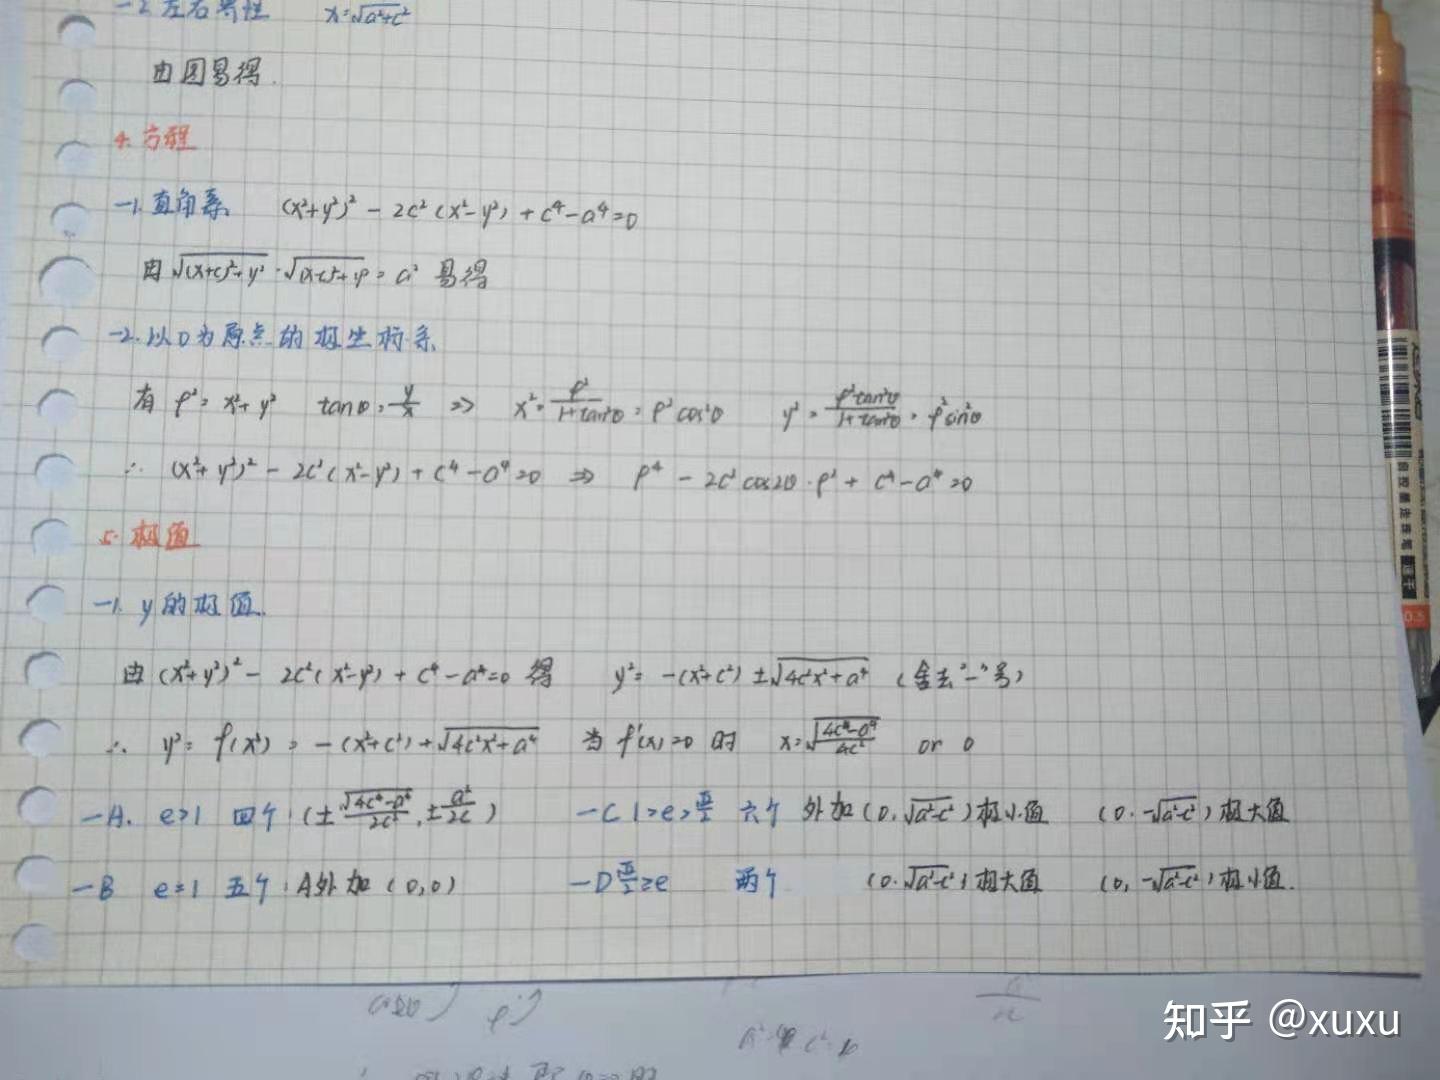 -2 左右界性 x=√(a²+c²)
由图易得.
4. 方程
-1. 直角系 (x²+y²)² - 2c²(x²-y²) + c⁴-a⁴=0
由 √((x+c)²+y²)·√((x-c)²+y²) = a² 易得
-2. 以O为原点的极坐标系
有 ρ²=x²+y² tanθ=y/x ⇒ x²=ρ²/(1+tan²θ)=ρ²cos²θ y²=ρ²tan²θ/(1+tan²θ)=ρ²sin²θ
∴ (x²+y²)² - 2c²(x²-y²) + c⁴-a⁴=0 ⇒ ρ⁴ - 2c²cos2θ·ρ² + c⁴-a⁴=0
5. 极值
-1. y的极值.
由 (x²+y²)² - 2c²(x²-y²) + c⁴-a⁴=0 得 y²= -(x²+c²) ± √(4c²x²+a⁴) (舍去"-"号)
∴ y²= f(x²) = -(x²+c²) + √(4c²x²+a⁴) 当 f'(x)=0 时 x=√((4c⁴-a⁴)/4c²) or 0
-A. e>1 四个: (±√(4c⁴-a⁴)/2c², ±a²/2c) -C 1>e>√2/2 六个 外加(0,√(a²-c²))极小值 (0,-√(a²-c²))极大值
-B e=1 五个: A外加 (0,0) -D √2/2≥e 两个 (0,√(a²-c²))极大值 (0,-√(a²-c²))极小值.
知乎 @xuxu